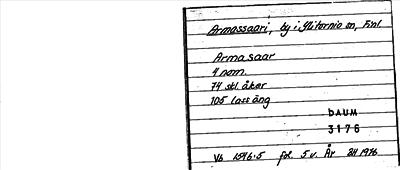 Armassaari, by i Ylitornio sn, Finl.
Armasaar
4 nom.
74 skl. åker
105 lass äng
DAUM
3176
Vb 1546:5 fol. 5 v. År